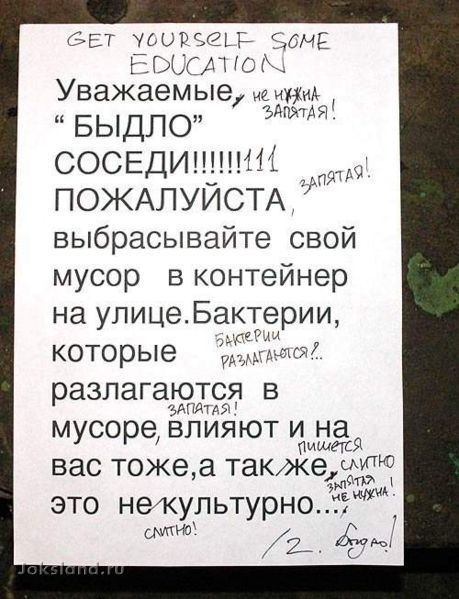 GET YOURSELF SOME
EDUCATION
Уважаемые, не нужна
ЗАПЯТАЯ!
“ БЫДЛО”
СОСЕДИ!!!!!!111
ЗАПЯТАЯ!
ПОЖАЛУЙСТА,
выбрасывайте свой
мусор в контейнер
на улице.Бактерии,
которые БАКТЕРИИ
РАЗЛАГАЮТСЯ?..
разлагаются в
ЗАПАТАЯ!
мусоре, влияют и на
пишется
вас тоже,а так же, СЛИТНО
ЗАПЯТАЯ
НЕ НУЖНА!
это не культурно....
СЛИТНО!
/2. быдло!
Joksland.ru